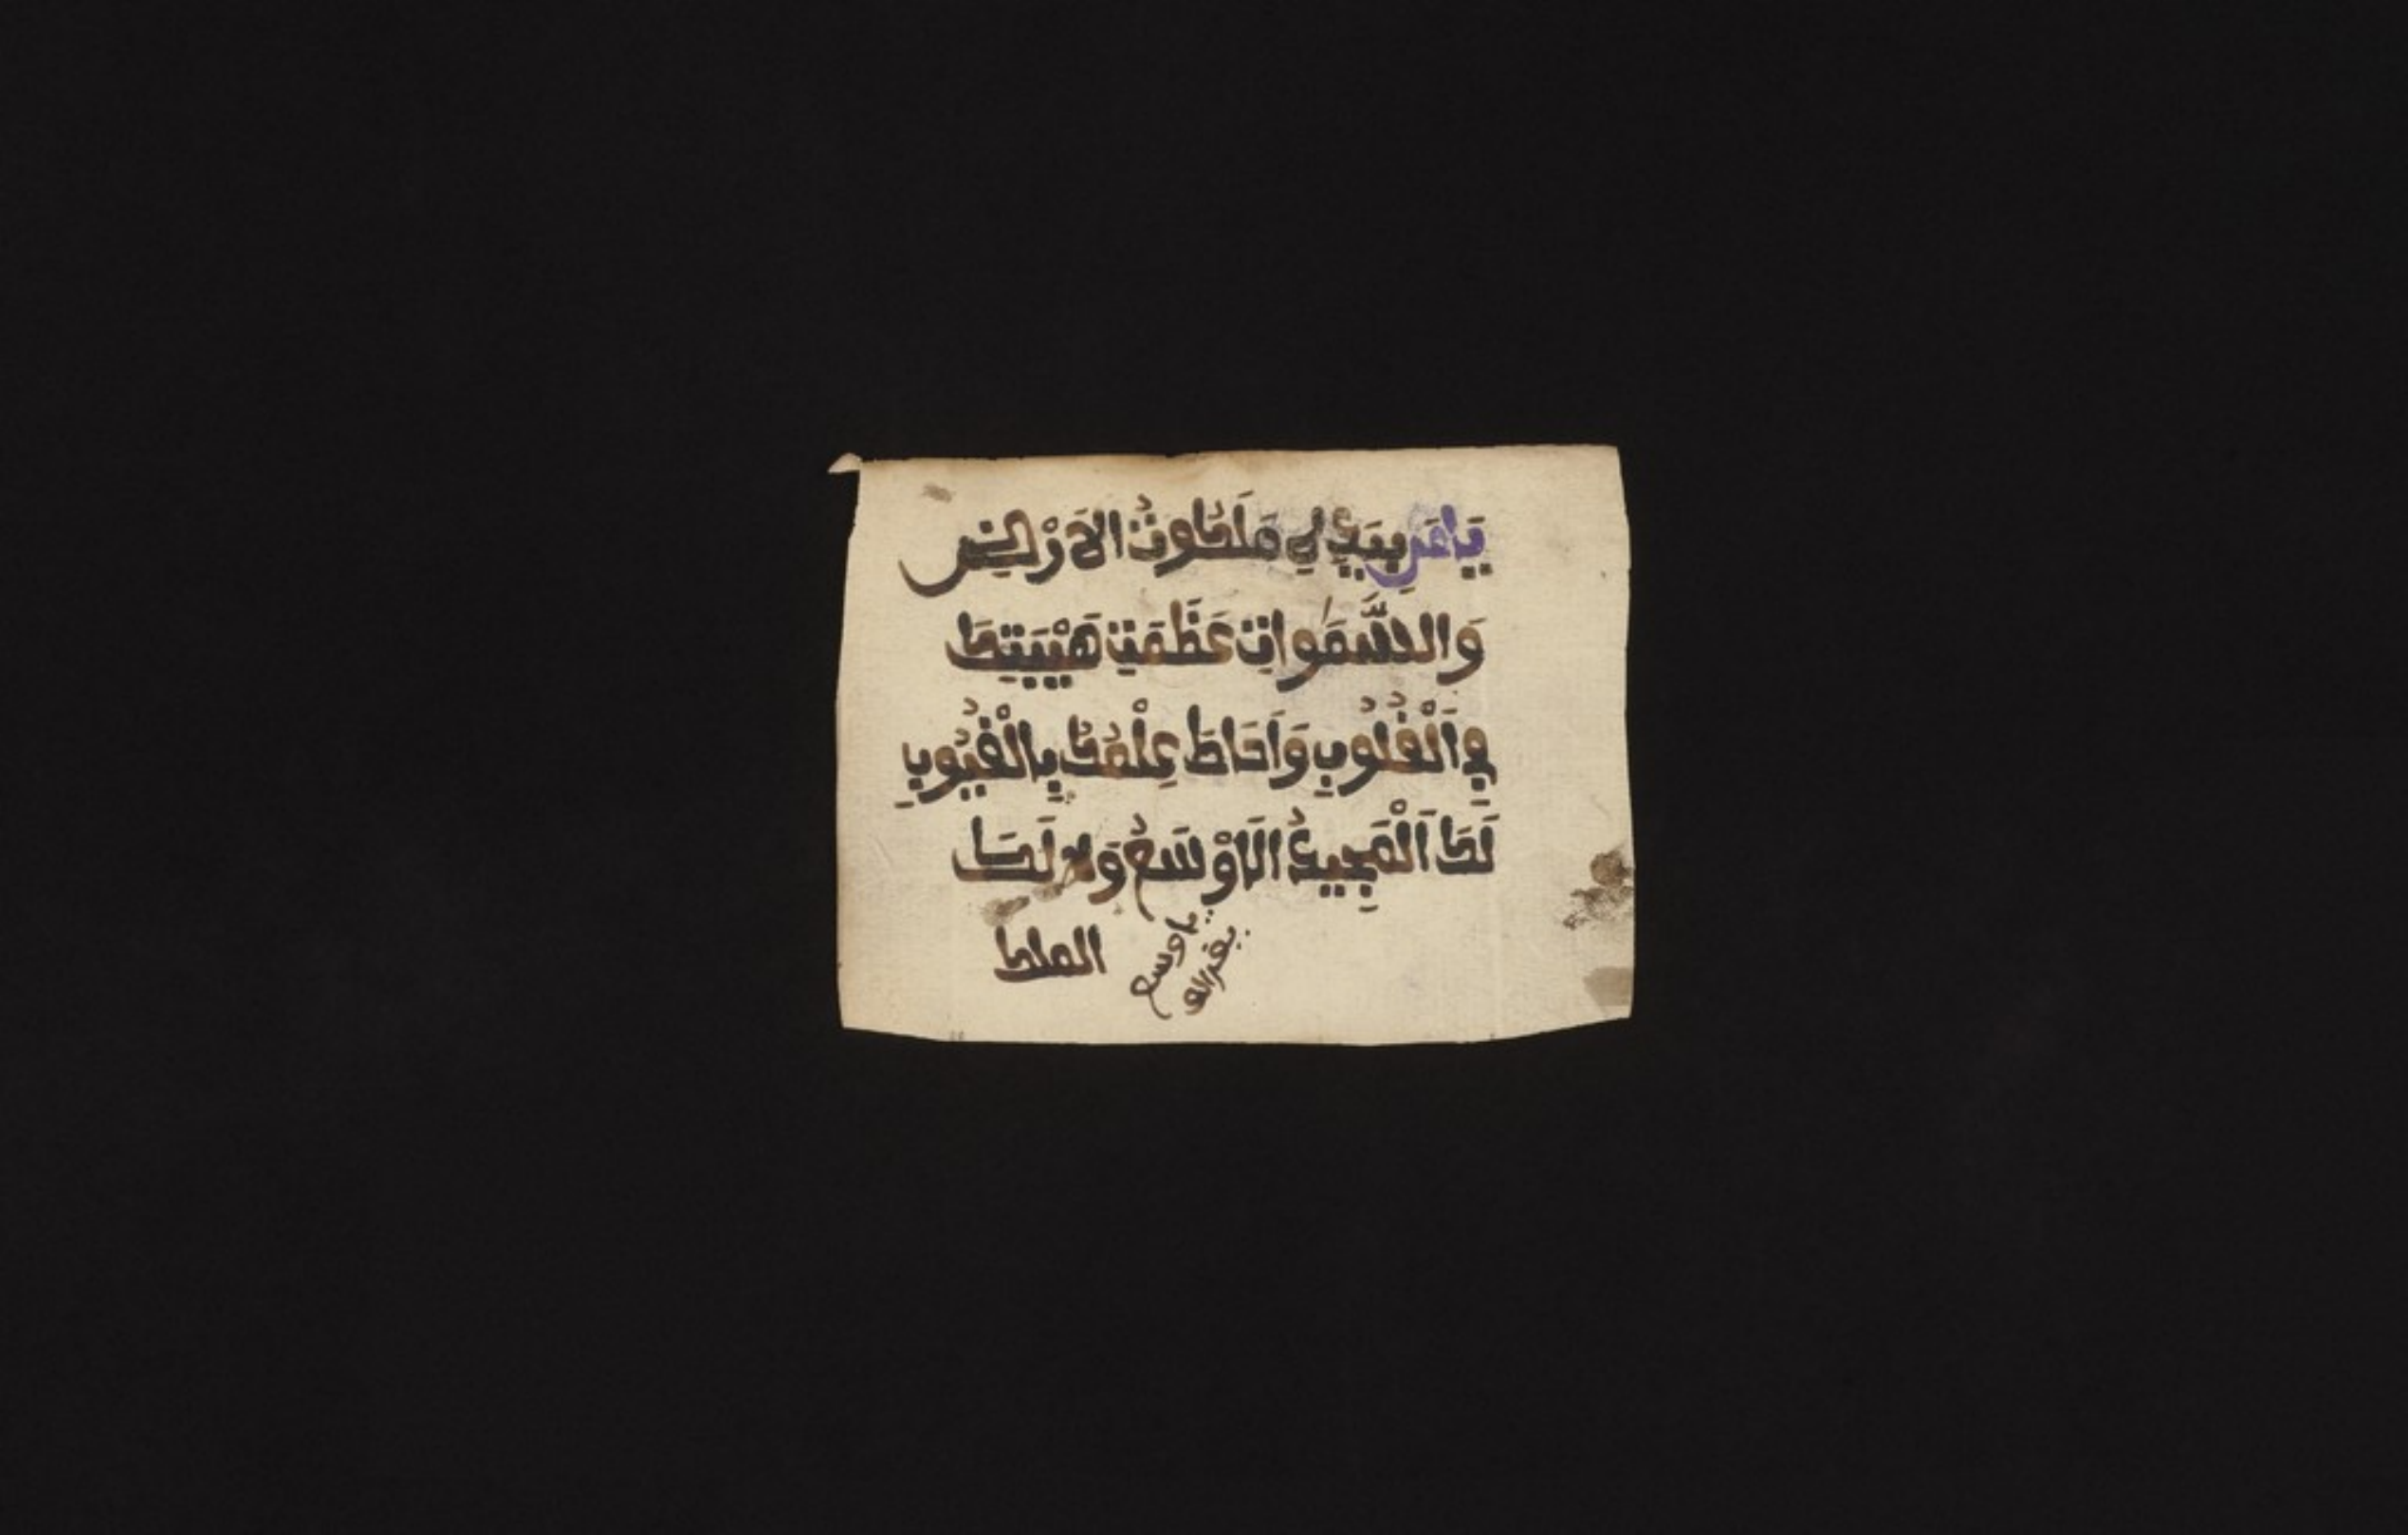 يَامَنِ بِيَدِهِ مَلَكُوتُ الاَرْضِ
وَالسَّمٰوَاتِ عَظُمَتِ هَيْبَتِكَ
فِي اَلْقُلُوبِ وَاَحَاطَ عِلْمُكَ بِالْغُيُوبِ
لَكَ اَلْمَجِيدُ الَاوْسَعُ وَلَكَ
الملك